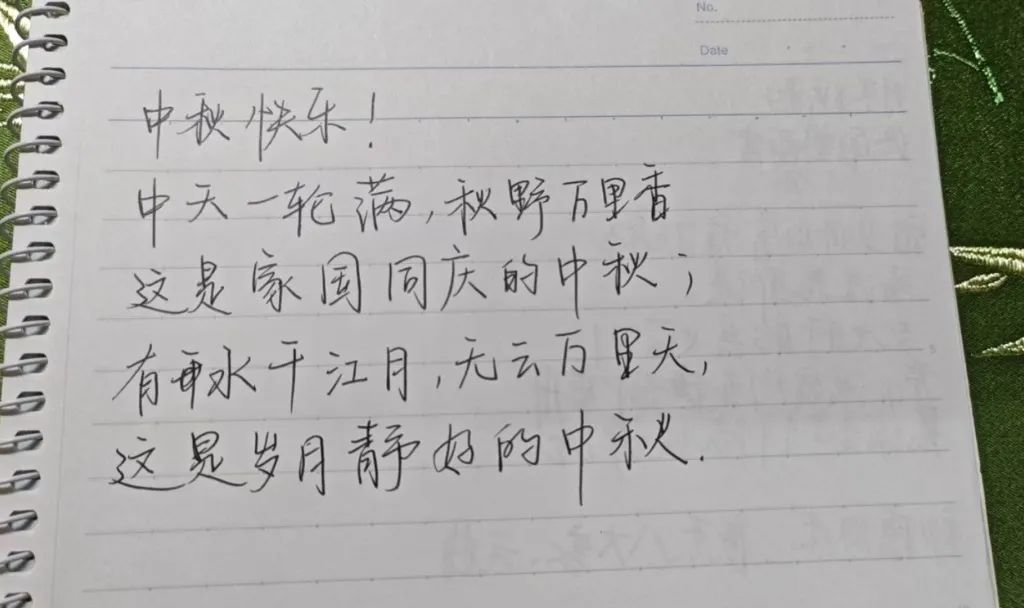 No.
Date
中秋快乐！
中天一轮满，秋野万里香
这是家国同庆的中秋；
有水千江月，无云万里天，
这是岁月静好的中秋.